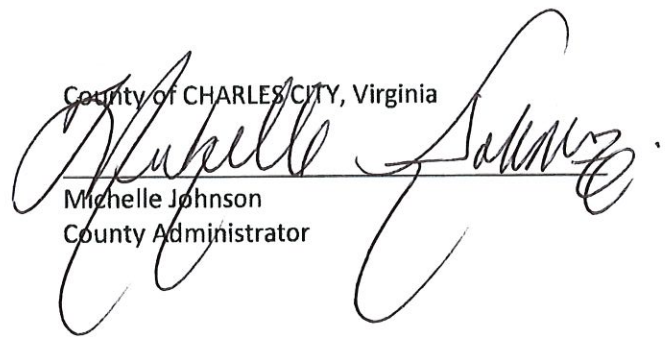 County of CHARLES CITY, Virginia
Michelle Johnson
Michelle Johnson
County Administrator